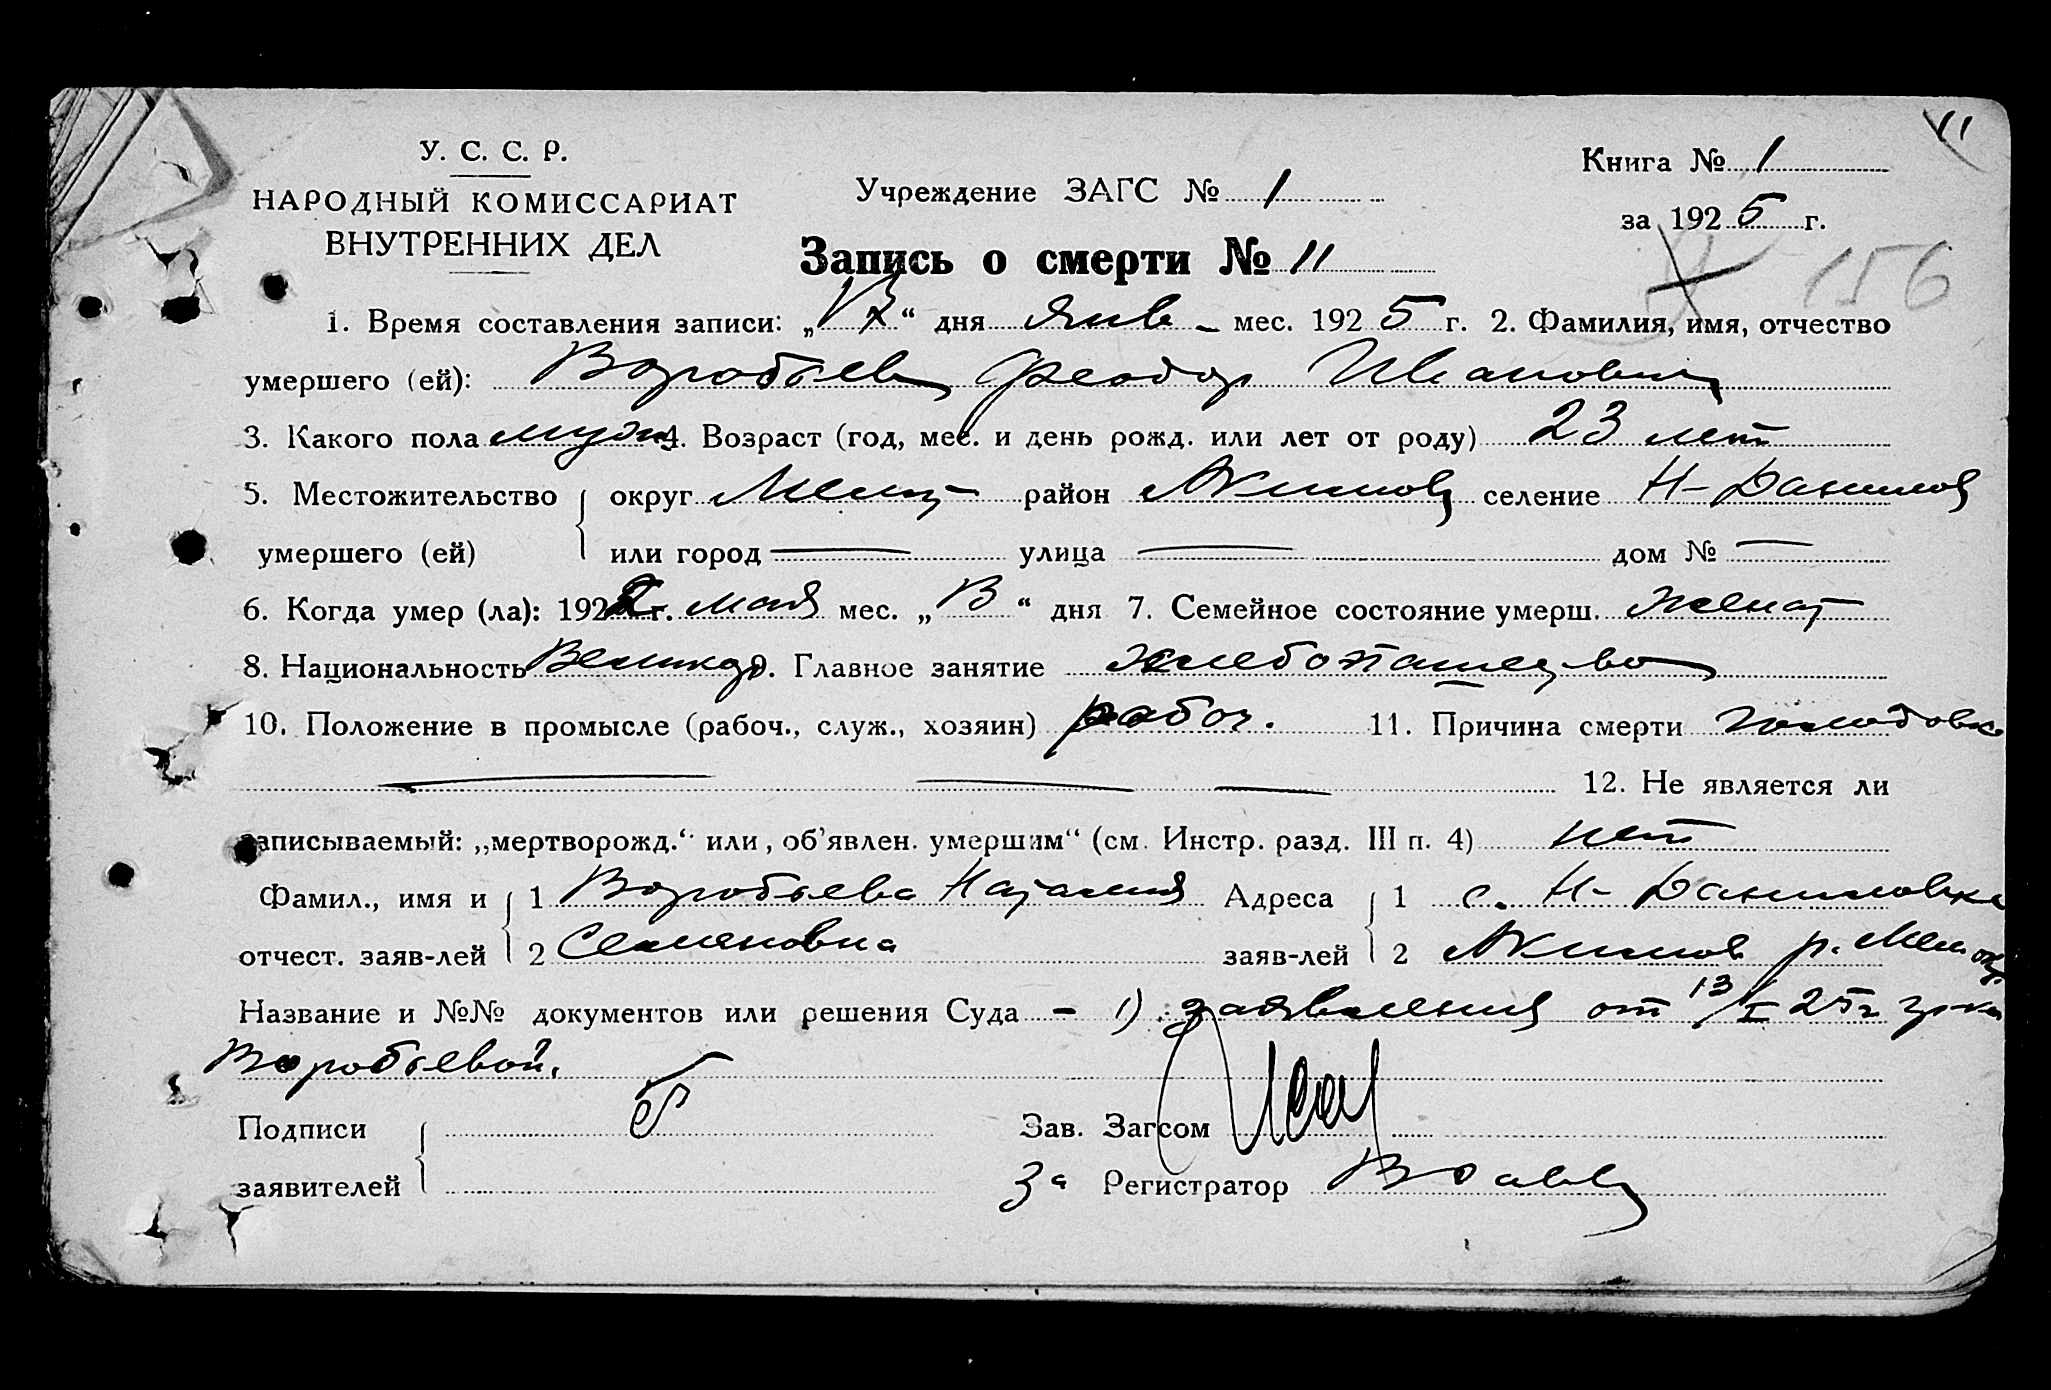 11
У. С. С. Р.
НАРОДНЫЙ КОМИССАРИАТ
ВНУТРЕННИХ ДЕЛ
Учреждение ЗАГС № 1
Книга № 1
за 1925 г.
156
Запись о смерти № 11
1. Время составления записи: „ “ дня янв мес. 1925 г. 2. Фамилия, имя, отчество
умершего (ей): Воробьев Феодор Иванович
3. Какого пола муж 4. Возраст (год, мес. и день рожд. или лет от роду) 23 лет
5. Местожительство округ Мелит район Акимов селение Н-Данилов
умершего (ей) или город — улица — дом № —
6. Когда умер (ла): 192 г. мая мес. „ “ дня 7. Семейное состояние умерш. женат
8. Национальность Великор 9. Главное занятие хлебопашество
10. Положение в промысле (рабоч., служ., хозяин) рабоч. 11. Причина смерти голодовка
12. Не является ли
записываемый: „мертворожд.“ или, об'явлен. умершим“ (см. Инстр. разд. III п. 4) нет
Фамил., имя и 1 Воробьева Наталия Адреса 1 с. Н- Даниловка
отчест. заяв-лей 2 Семеновна заяв-лей 2 Акимов р. Мел. окр.
Название и №№ документов или решения Суда – 1) заявления от 13/I 25г гр-ки
Воробьевой.
Подписи Зав. Загсом
заявителей За Регистратор